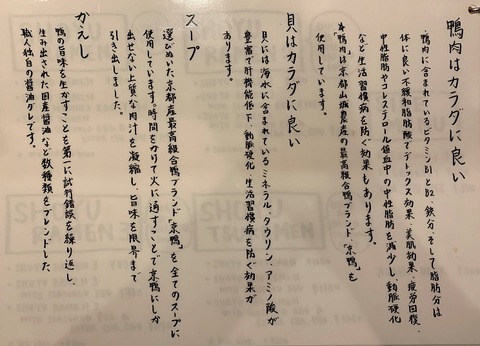 鴨肉はカラダに良い
鴨肉に含まれているビタミンB1とB2、鉄分、そして脂肪分は
体に良い不飽和脂肪酸でデトックス効果、美肌効果、疲労回復、
中性脂肪やコレステロール値血中の中性脂肪を減少し、動脈硬化
など生活習慣病を防ぐ効果もあります。
*鴨肉は京都山城農産の最高級合鴨ブランド「京鴨」を
使用しています。
貝はカラダに良い
貝には海水に含まれているミネラル、タウリン、アミノ酸が
豊富で肝機能低下、動脈硬化、生活習慣病を防ぐ効果が
あります。
スープ
選びぬいた京都産最高級合鴨ブランド「京鴨」を全てのスープに
使用しています。時間をかけて火に通すことで京鴨にしか
出せない上質な肉汁を凝縮し、旨味を限界まで
引き出しました。
かえし
鴨の旨味を生かすことを第一に試行錯誤を繰り返し、
生み出された国産醤油など数種類をブレンドした、
職人独自の醤油ダレです。